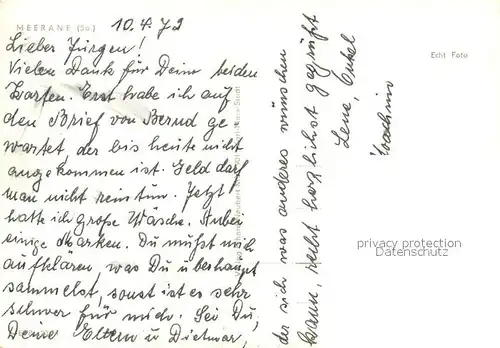 MEERANE (Sa.)
10.4.72
Lieber Jürgen!
Vielen Dank für Deine beiden
Karten. Erst habe ich auf
den Brief von Bernd ge
wartet, der bis heute nicht
angekommen ist. Geld darf
man nicht reintun. Jetzt
hatte ich große Wäsche. Anbei
einige Marken. Du mußt mich
aufklären, was Du überhaupt
sammelst, sonst ist es sehr
schwer für mich. Sei Du,
Deine Eltern u Dietmar,
der sich was anderes wünschen
kann, recht herzlichst gegrüßt
Lene, Onkel
Joachim
Echt Foto
privacy protection
Datenschutz